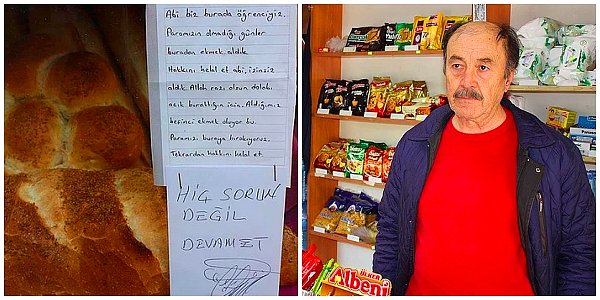 Abi biz burada öğrenciyiz.
Paramızın olmadığı günler
buradan ekmek aldık.
Hakkını helal et abi, izinsiz
aldık. Allah razı olsun dolabı
açık bıraktığın için. Aldığımız
beşinci ekmek oluyor bu.
Paramızı buraya bırakıyoruz.
Tekrardan hakkını helal et.
HİG SORUN
DEĞİL
DEVAMET
ÜLKER
Albeni